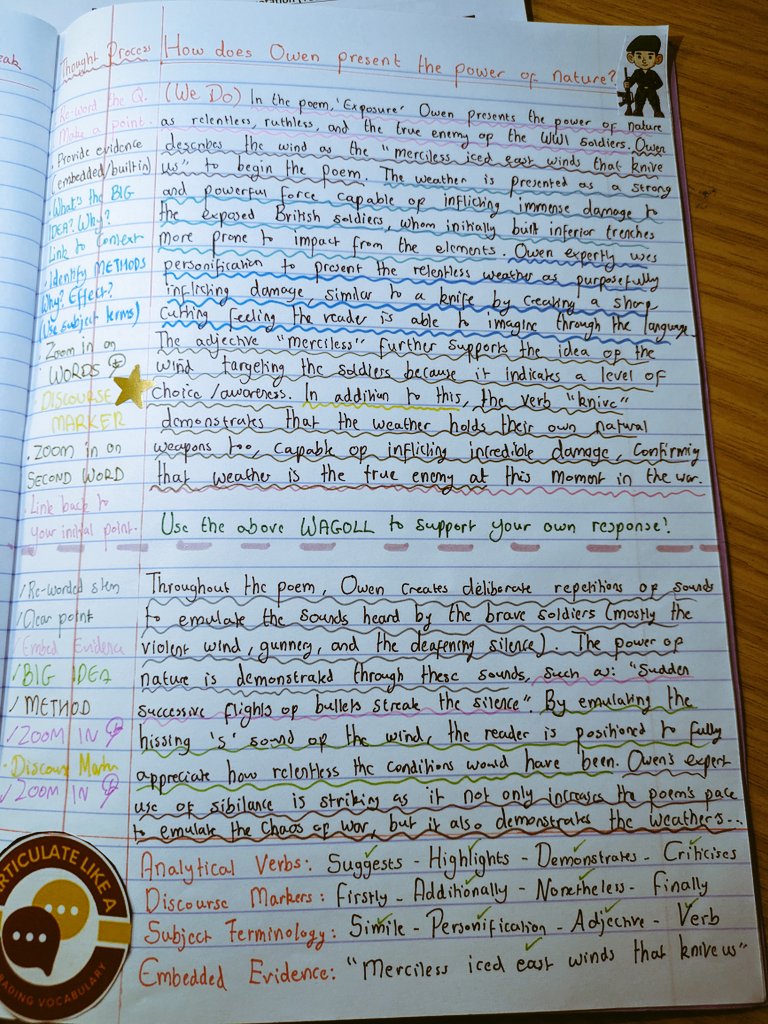 eak
Thought Process
How does Owen present the power of nature?
Re-word the Q.
Make a point.
• Provide evidence
(embedded/built in)
• What's the BIG
IDEA? Why?
Link to Context
• Identify METHODS
Why? Effect?
(Use subject terms)
• Zoom in on
WORDS
• DISCOURSE
MARKER
• Zoom in on
SECOND WORD
• Link back to
your initial point.
(We Do) In the poem, 'Exposure' Owen presents the power of nature
as relentless, ruthless, and the true enemy of the WW1 soldiers. Owen
describes the wind as the "merciless iced east winds that knive
us" to begin the poem. The weather is presented as a strong
and powerful force capable of inflicting immense damage to
the exposed British soldiers, whom initially built inferior trenches
more prone to impact from the elements. Owen expertly uses
personification to present the relentless weather as purposefully
inflicting damage, similar to a knife by creating a sharp
cutting feeling the reader is able to imagine through the language.
The adjective "merciless" further supports the idea of the
wind targeting the soldiers because it indicates a level of
choice/awareness. In addition to this, the verb "knive"
demonstrates that the weather holds their own natural
weapons too, capable of inflicting incredible damage, confirming
that weather is the true enemy at this moment in the war.
Use the above WAGOLL to support your own response!
✓ Re-worded stem
✓ Clear point
Embed Evidence
✓ BIG IDEA
✓ METHOD
✓ ZOOM IN
• Discourse Marker
✓ ZOOM IN
Throughout the poem, Owen creates deliberate repetitions of sounds
to emulate the sounds heard by the brave soldiers (mostly the
violent wind, gunnery, and the deafening silence). The power of
nature is demonstrated through these sounds, such as: "Sudden
successive flights of bullets streak the silence". By emulating the
hissing 's' sound of the wind, the reader is positioned to fully
appreciate how relentless the conditions would have been. Owen's expert
use of sibilance is striking as it not only increases the poem's pace
to emulate the chaos of war, but it also demonstrates the weather's...
Analytical Verbs: Suggests - Highlights - Demonstrates - Criticises
Discourse Markers: Firstly - Additionally - Nonetheless - Finally
Subject Terminology: Simile - Personification - Adjective - Verb
Embedded Evidence: "Merciless iced east winds that knive us"
ARTICULATE LIKE A
VOCABULARY